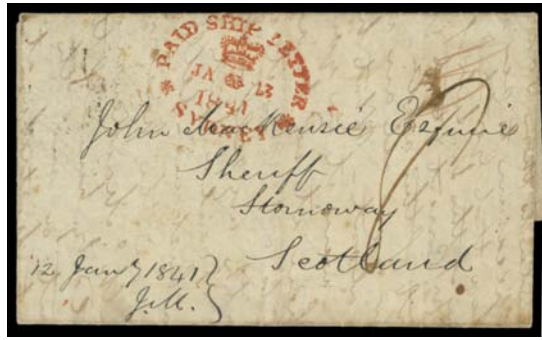 PAID SHIP LETTER
JA 13
1841
SYDNEY
John MacKenzie Esquire
Sheriff
Stornoway
Scotland
12 Jany 1841
J.M.